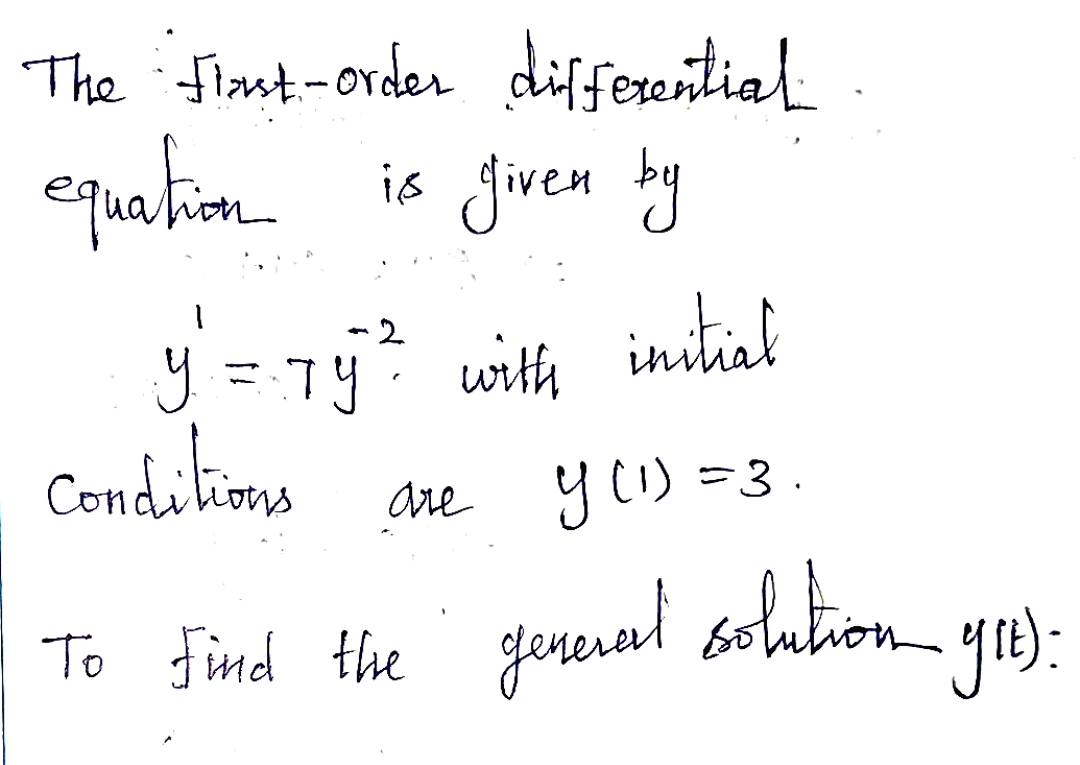 The first-order differential
equation is given by
y' = 7y⁻² with initial
Conditions are y(1) = 3.
To find the general solution y(t):